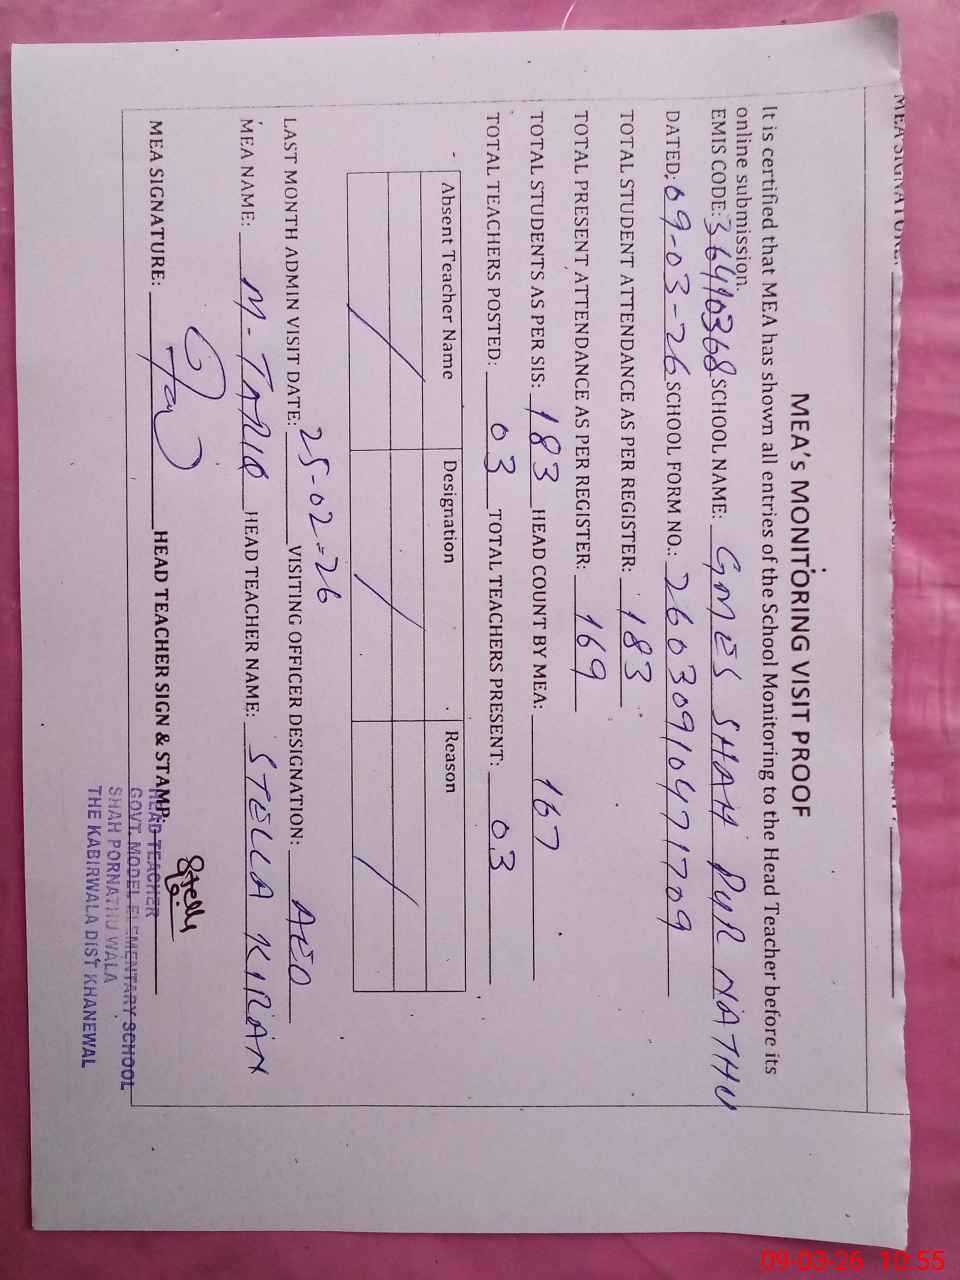 MEA's MONITORING VISIT PROOF
It is certified that MEA has shown all entries of the School Monitoring to the Head Teacher before its
online submission.
EMIS CODE: 36440368 SCHOOL NAME: GMES SHAH PUR NATHU
DATED: 09-03-26 SCHOOL FORM NO.: 26030910471709
TOTAL STUDENT ATTENDANCE AS PER REGISTER: 183
TOTAL PRESENT ATTENDANCE AS PER REGISTER: 169
TOTAL STUDENTS AS PER SIS: 183 HEAD COUNT BY MEA: 167
TOTAL TEACHERS POSTED: 03 TOTAL TEACHERS PRESENT: 03
Absent Teacher Name Designation Reason
LAST MONTH ADMIN VISIT DATE: 25-02-26 VISITING OFFICER DESIGNATION: AEO
MEA NAME: M-TARIQ HEAD TEACHER NAME: STELLA KIRAN
MEA SIGNATURE: HEAD TEACHER SIGN & STAMP: Stella
HEAD TEACHER
GOVT. MODEL ELEMENTARY SCHOOL
SHAH PORNATHU WALA
THE KABIRWALA DIST KHANEWAL
09-03-26 10:55